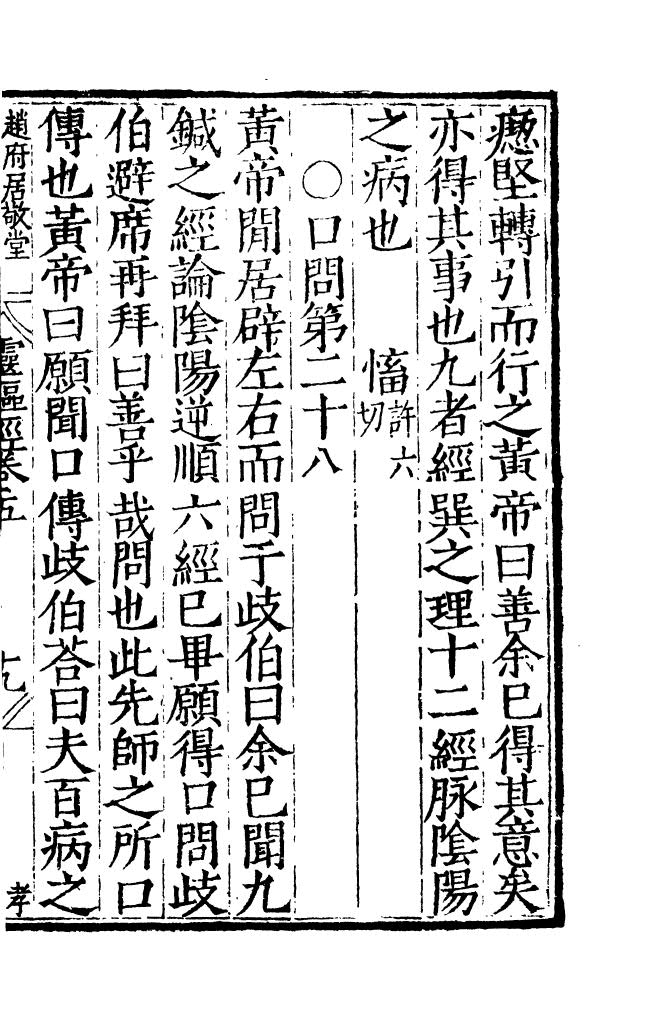 瘛堅轉引而行之黃帝曰善余已得其意矣
亦得其事也九者經巽之理十二經脉陰陽
之病也　慉許六切
○口問第二十八
黃帝閒居辟左右而問于歧伯曰余已聞九
鍼之經論陰陽逆順六經已畢願得口問歧
伯避席再拜曰善乎哉問也此先師之所口
傳也黃帝曰願聞口傳歧伯荅曰夫百病之
趙府居敬堂　靈樞經卷五　十九　孝